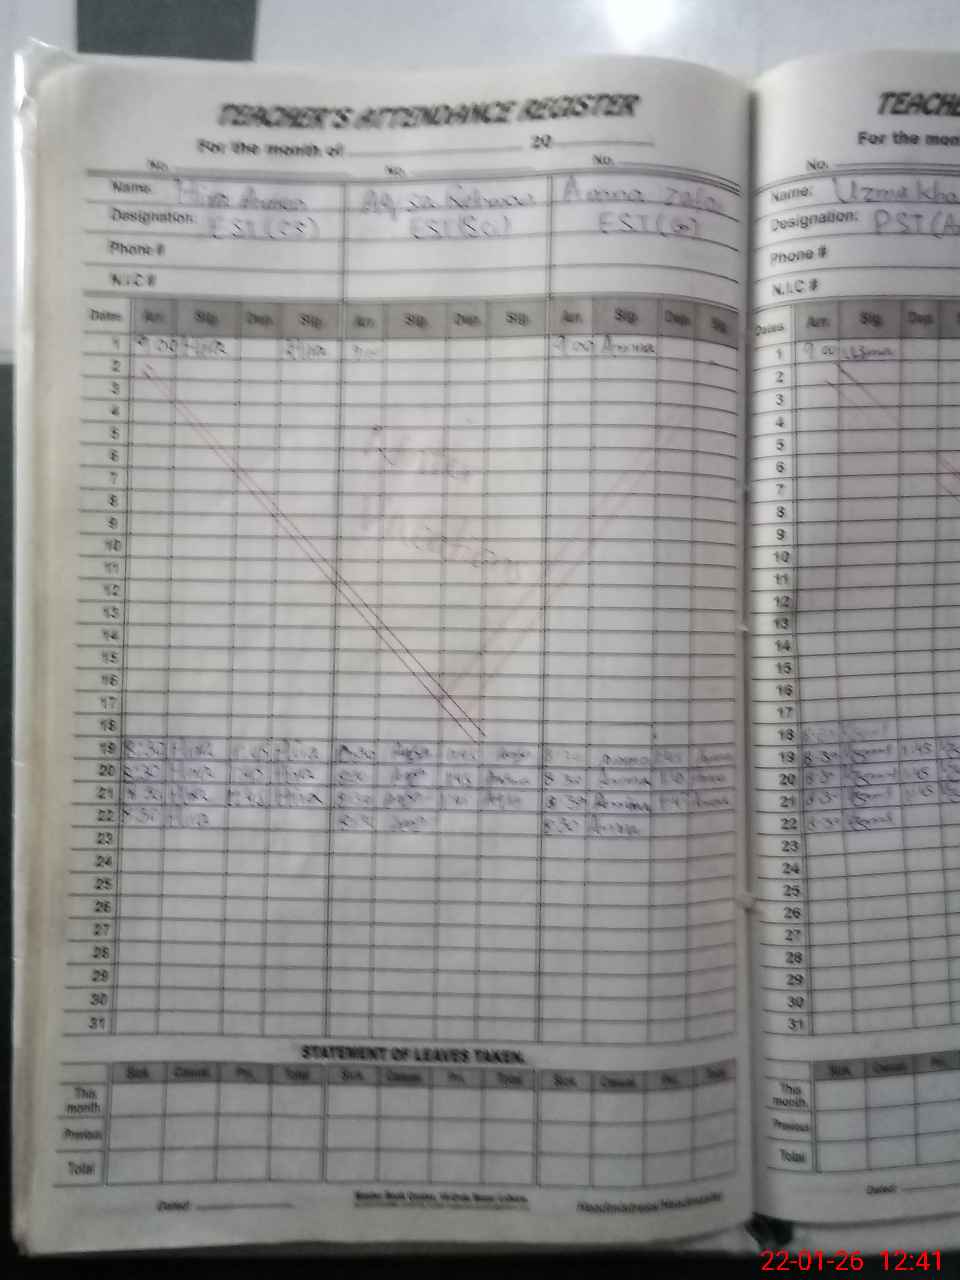 TEACHER'S ATTENDANCE REGISTER
For the month of 20
No. No. No.
Name: Hira Aysa Rehman Amna Zafar
Designation: EST(CS) EST(Sci) EST(G)
Phone #
N.I.C #
Dates Arr. Sig. Dep. Sig. Arr. Sig. Dep. Sig. Arr. Sig. Dep. Sig.
1 9 00 Hira Hira 9 00 Amna
2
3
4
5
6
7
8
9
10
11
12
13
14
15
16
17
18
19 8:30 Hira 1:45 Hira 8:30 Aysa 1:45 Aysa 8:30 Amna 1:45 Amna
20 8:30 Hira 1:45 Hira 8:30 Aysa 1:45 Aysa 8:30 Amna 1:45 Amna
21 8:30 Hira 1:45 Hira 8:30 Aysa 1:45 Aysa 8:30 Amna 1:45 Amna
22 8:30 Hira 8:30 Aysa 8:30 Amna
23
24
25
26
27
28
29
30
31
Winter
Vacation
STATEMENT OF LEAVES TAKEN.
Sick. Casual. Pri. Total Sick. Casual. Pri. Total Sick. Casual. Pri. Total
This month
Previous
Total
Dated
Headmistress/Headmaster
TEACHE
For the mon
No.
Name: Uzma Kha
Designation: PST(A
Phone #
N.I.C #
Dates Arr. Sig. Dep.
1 9 00 Uzma
2
3
4
5
6
7
8
9
10
11
12
13
14
15
16
17
18
19 8:30 1:45
20 8:30 1:45
21 8:30 1:45
22 8:30
23
24
25
26
27
28
29
30
31
Sick. Casual.
This month.
Previous
Total
Dated:
22-01-26 12:41